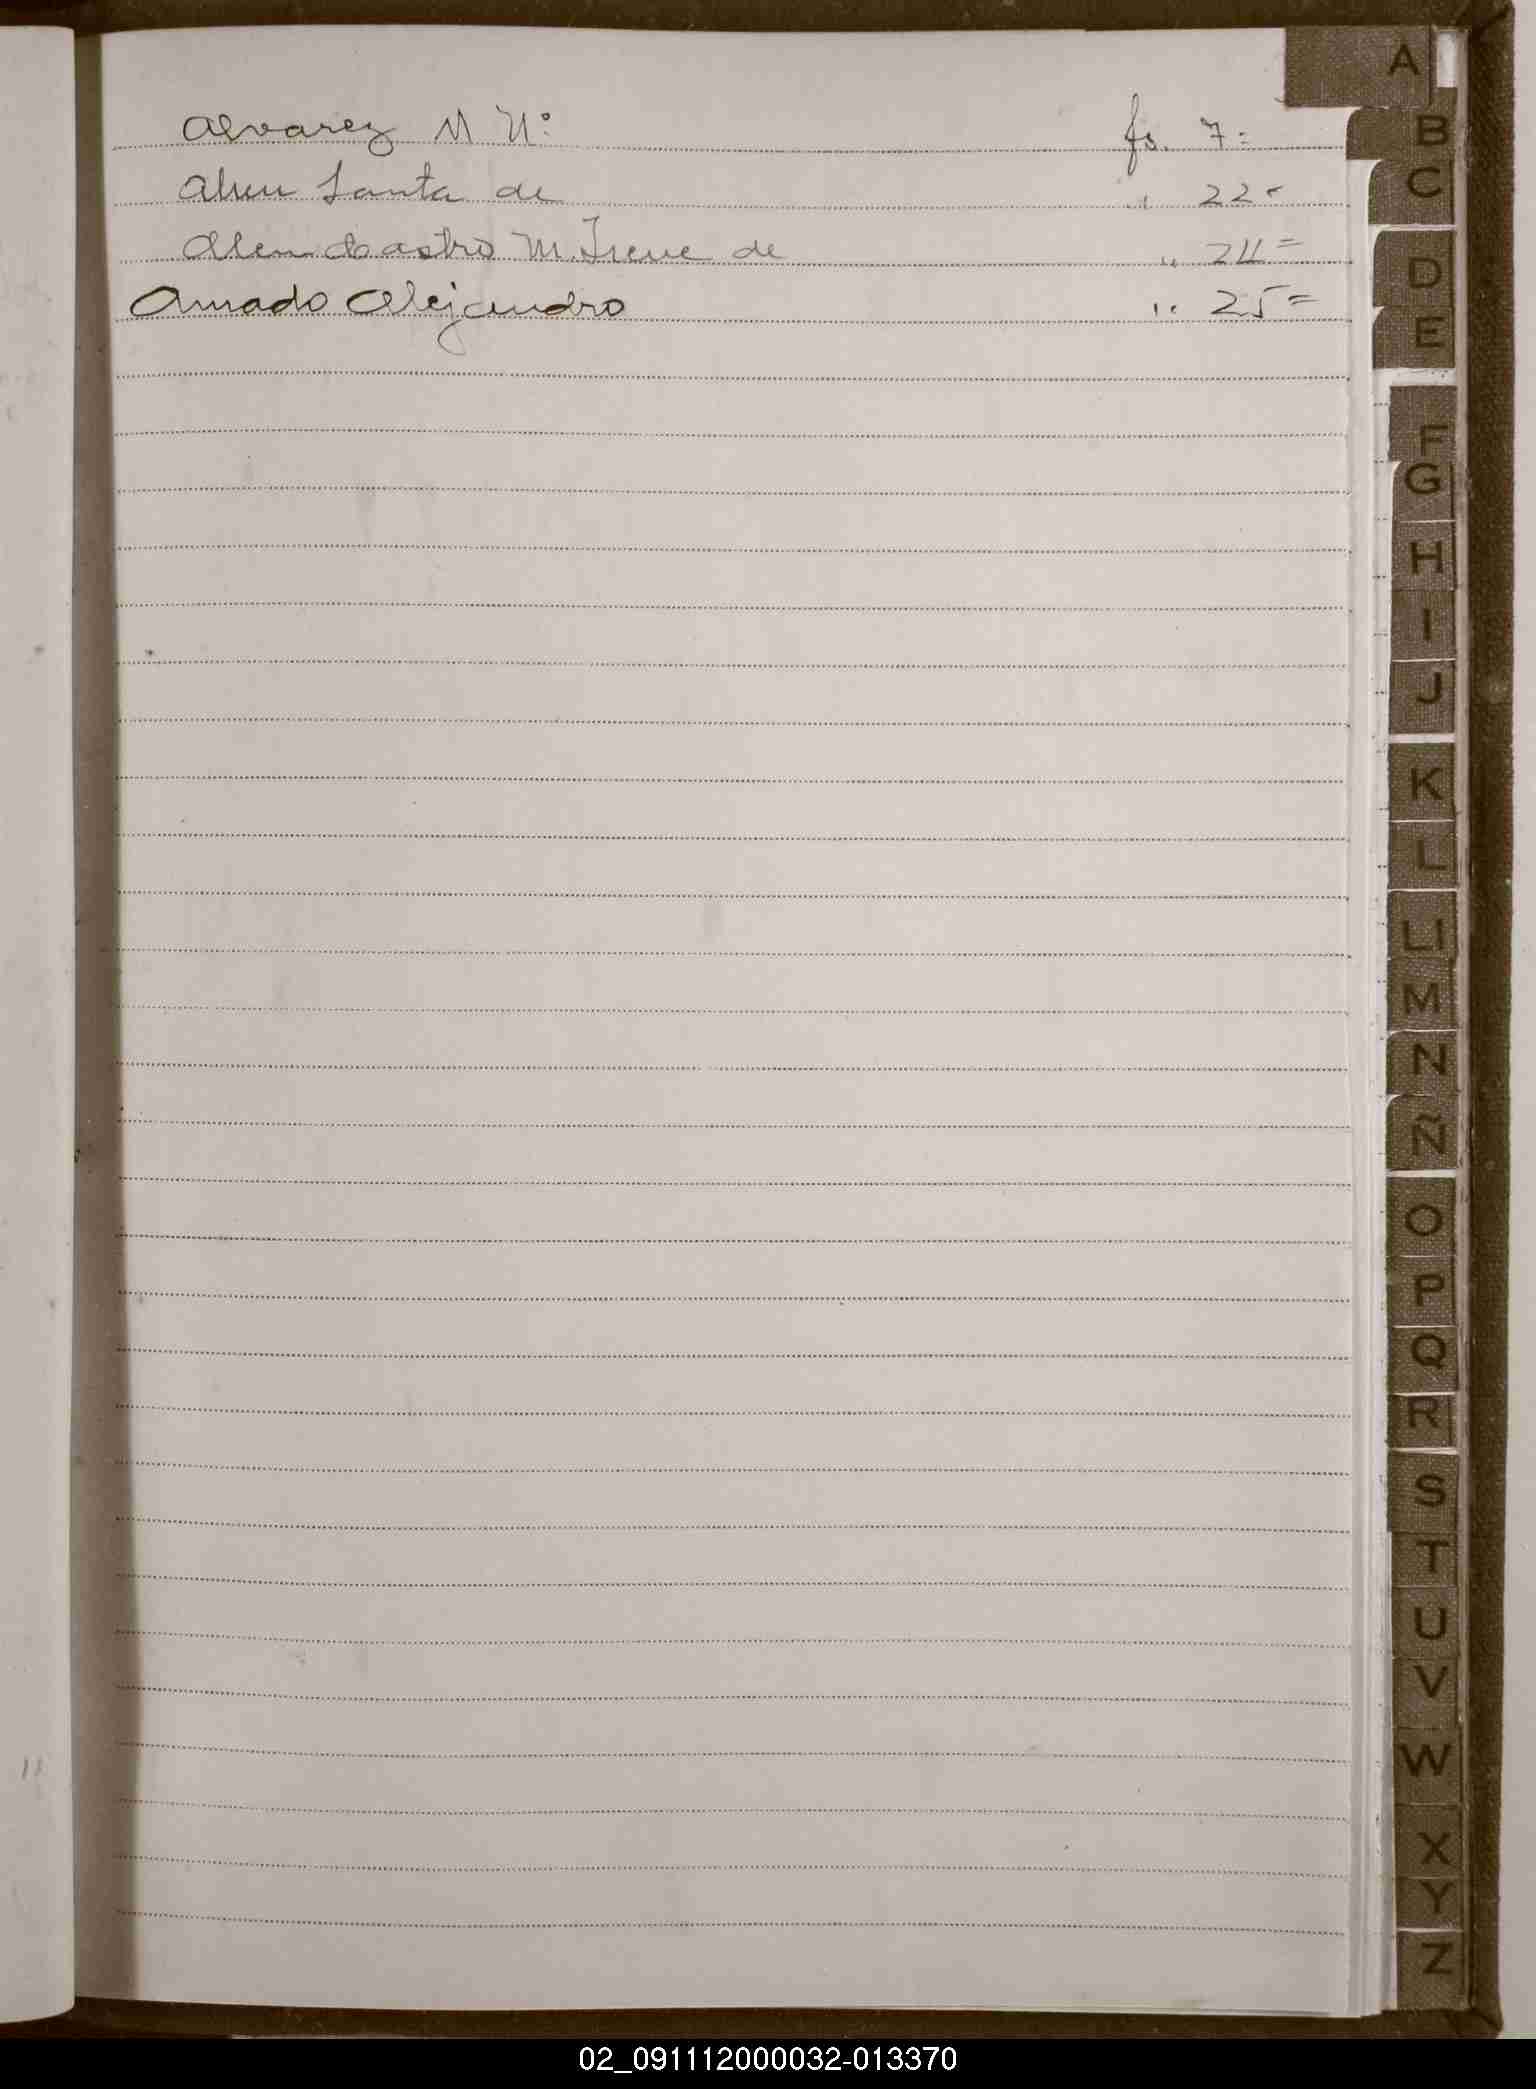 Alvarez M N: fs. 7=
Abreu Santa de " 22=
Alem Castro M. Irene de " 24=
Amado Alejandro " 25=
A
B
C
D
E
F
G
H
I
J
K
L
LI
M
N
Ñ
O
P
Q
R
S
T
U
V
W
X
Y
Z
02_091112000032-013370